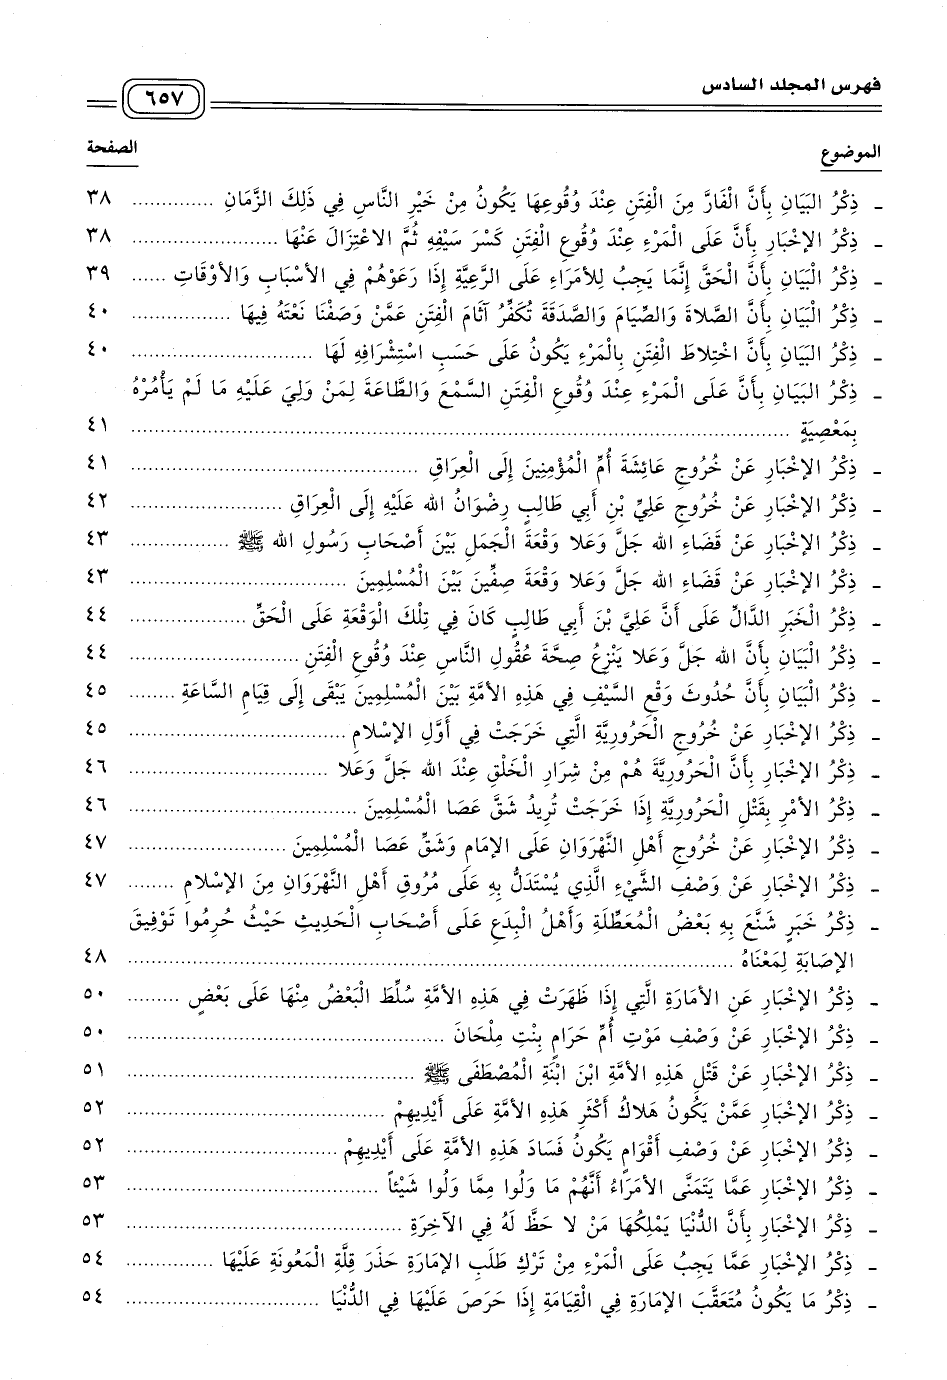 فهرس المجلد السادس ٦٥٧
الموضوع الصفحة
- ذِكْرُ البَيَانِ بِأَنَّ الْفَارَّ مِنَ الْفِتَنِ عِنْدَ وُقُوعِهَا يَكُونُ مِنْ خَيْرِ النَّاسِ فِي ذَلِكَ الزَّمَانِ ............. ٣٨
- ذِكْرُ الإِخْبَارِ بِأَنَّ عَلَى الْمَرْءِ عِنْدَ وُقُوعِ الْفِتَنِ كَسْرَ سَيْفِهِ ثُمَّ الاعْتِزَالَ عَنْهَا ....................... ٣٨
- ذِكْرُ الْبَيَانِ بِأَنَّ الْحَقَّ إِنَّمَا يَجِبُ لِلأمَرَاءِ عَلَى الرَّعِيَّةِ إِذَا رَعَوْهُمْ فِي الأسْبَابِ وَالأوْقَاتِ ...... ٣٩
- ذِكْرُ الْبَيَانِ بِأَنَّ الصَّلاةَ وَالصِّيَامَ وَالصَّدَقَةَ تُكَفِّرُ آثَامَ الْفِتَنِ عَمَّنْ وَصَفْنَا نَعْتَهُ فِيهَا ................ ٤٠
- ذِكْرُ البَيَانِ بِأَنَّ اخْتِلاطَ الْفِتَنِ بِالْمَرْءِ يَكُونُ عَلَى حَسَبِ اسْتِشْرَافِهِ لَهَا ............................. ٤٠
- ذِكْرُ البَيَانِ بِأَنَّ عَلَى الْمَرْءِ عِنْدَ وُقُوعِ الْفِتَنِ السَّمْعَ وَالطَّاعَةَ لِمَنْ وَلِيَ عَلَيْهِ مَا لَمْ يَأْمُرْهُ
بِمَعْصِيَةٍ ............................................................................................................ ٤١
- ذِكْرُ الإخْبَارِ عَنْ خُرُوجِ عَائِشَةَ أُمِّ الْمُؤْمِنِينَ إِلَى الْعِرَاقِ .............................................. ٤١
- ذِكْرُ الإخْبَارِ عَنْ خُرُوجِ عَلِيِّ بْنِ أَبِي طَالِبٍ رِضْوَانُ الله عَلَيْهِ إِلَى الْعِرَاقِ ........................ ٤٢
- ذِكْرُ الإخْبَارِ عَنْ قَضَاءِ الله جَلَّ وَعَلا وَقْعَةَ الْجَمَلِ بَيْنَ أَصْحَابِ رَسُولِ الله ﷺ ................ ٤٣
- ذِكْرُ الإخْبَارِ عَنْ قَضَاءِ الله جَلَّ وَعَلا وَقْعَةَ صِفِّينَ بَيْنَ الْمُسْلِمِينَ .................................. ٤٣
- ذِكْرُ الْخَبَرِ الدَّالِّ عَلَى أَنَّ عَلِيَّ بْنَ أَبِي طَالِبٍ كَانَ فِي تِلْكَ الْوَقْعَةِ عَلَى الْحَقِّ ................... ٤٤
- ذِكْرُ الْبَيَانِ بِأَنَّ الله جَلَّ وَعَلا يَنْزِعُ صِحَّةَ عُقُولِ النَّاسِ عِنْدَ وُقُوعِ الْفِتَنِ ........................... ٤٤
- ذِكْرُ الْبَيَانِ بِأَنَّ حُدُوثَ وَقْعِ السَّيْفِ فِي هَذِهِ الأمَّةِ بَيْنَ الْمُسْلِمِينَ يَبْقَى إِلَى قِيَامِ السَّاعَةِ ........ ٤٥
- ذِكْرُ الإخْبَارِ عَنْ خُرُوجِ الْحَرُورِيَّةِ الَّتِي خَرَجَتْ فِي أَوَّلِ الإسْلامِ .................................. ٤٥
- ذِكْرُ الإخْبَارِ بِأَنَّ الْحَرُورِيَّةَ هُمْ مِنْ شِرَارِ الْخَلْقِ عِنْدَ الله جَلَّ وَعَلا ............................... ٤٦
- ذِكْرُ الأمْرِ بِقَتْلِ الْحَرُورِيَّةِ إِذَا خَرَجَتْ تُرِيدُ شَقَّ عَصَا الْمُسْلِمِينَ .................................... ٤٦
- ذِكْرُ الإخْبَارِ عَنْ خُرُوجِ أَهْلِ النَّهْرَوَانِ عَلَى الإمَامِ وَشَقِّ عَصَا الْمُسْلِمِينَ ......................... ٤٧
- ذِكْرُ الإخْبَارِ عَنْ وَصْفِ الشَّيْءِ الَّذِي يُسْتَدَلُّ بِهِ عَلَى مُرُوقِ أَهْلِ النَّهْرَوَانِ مِنَ الإسْلامِ ........ ٤٧
- ذِكْرُ خَبَرٍ شَنَّعَ بِهِ بَعْضُ الْمُعَطِّلَةِ وَأَهْلُ الْبِدَعِ عَلَى أَصْحَابِ الْحَدِيثِ حَيْثُ حُرِمُوا تَوْفِيقَ
الإصَابَةِ لِمَعْنَاهُ .................................................................................................... ٤٨
- ذِكْرُ الإخْبَارِ عَنِ الأمَارَةِ الَّتِي إِذَا ظَهَرَتْ فِي هَذِهِ الأمَّةِ سُلِّطَ الْبَعْضُ مِنْهَا عَلَى بَعْضٍ ......... ٥٠
- ذِكْرُ الإخْبَارِ عَنْ وَصْفِ مَوْتِ أُمِّ حَرَامٍ بِنْتِ مِلْحَانَ ................................................... ٥٠
- ذِكْرُ الإخْبَارِ عَنْ قَتْلِ هَذِهِ الأمَّةِ ابْنَ ابْنَةِ الْمُصْطَفَى ﷺ .............................................. ٥١
- ذِكْرُ الإخْبَارِ عَمَّنْ يَكُونُ هَلاكُ أَكْثَرِ هَذِهِ الأمَّةِ عَلَى أَيْدِيهِمْ ......................................... ٥٢
- ذِكْرُ الإخْبَارِ عَنْ وَصْفِ أَقْوَامٍ يَكُونُ فَسَادَ هَذِهِ الأمَّةِ عَلَى أَيْدِيهِمْ ................................. ٥٢
- ذِكْرُ الإخْبَارِ عَمَّا يَتَمَنَّى الأمَرَاءُ أَنَّهُمْ مَا وَلُوا مِمَّا وَلُوا شَيْئاً ........................................ ٥٣
- ذِكْرُ الإخْبَارِ بِأَنَّ الدُّنْيَا يَمْلِكُهَا مَنْ لا حَظَّ لَهُ فِي الآخِرَةِ ............................................ ٥٣
- ذِكْرُ الإخْبَارِ عَمَّا يَجِبُ عَلَى الْمَرْءِ مِنْ تَرْكِ طَلَبِ الإمَارَةِ حَذَرَ قِلَّةِ الْمَعُونَةِ عَلَيْهَا .............. ٥٤
- ذِكْرُ مَا يَكُونُ مُتَعَقَّبَ الإمَارَةِ فِي الْقِيَامَةِ إِذَا حَرَصَ عَلَيْهَا فِي الدُّنْيَا .............................. ٥٤